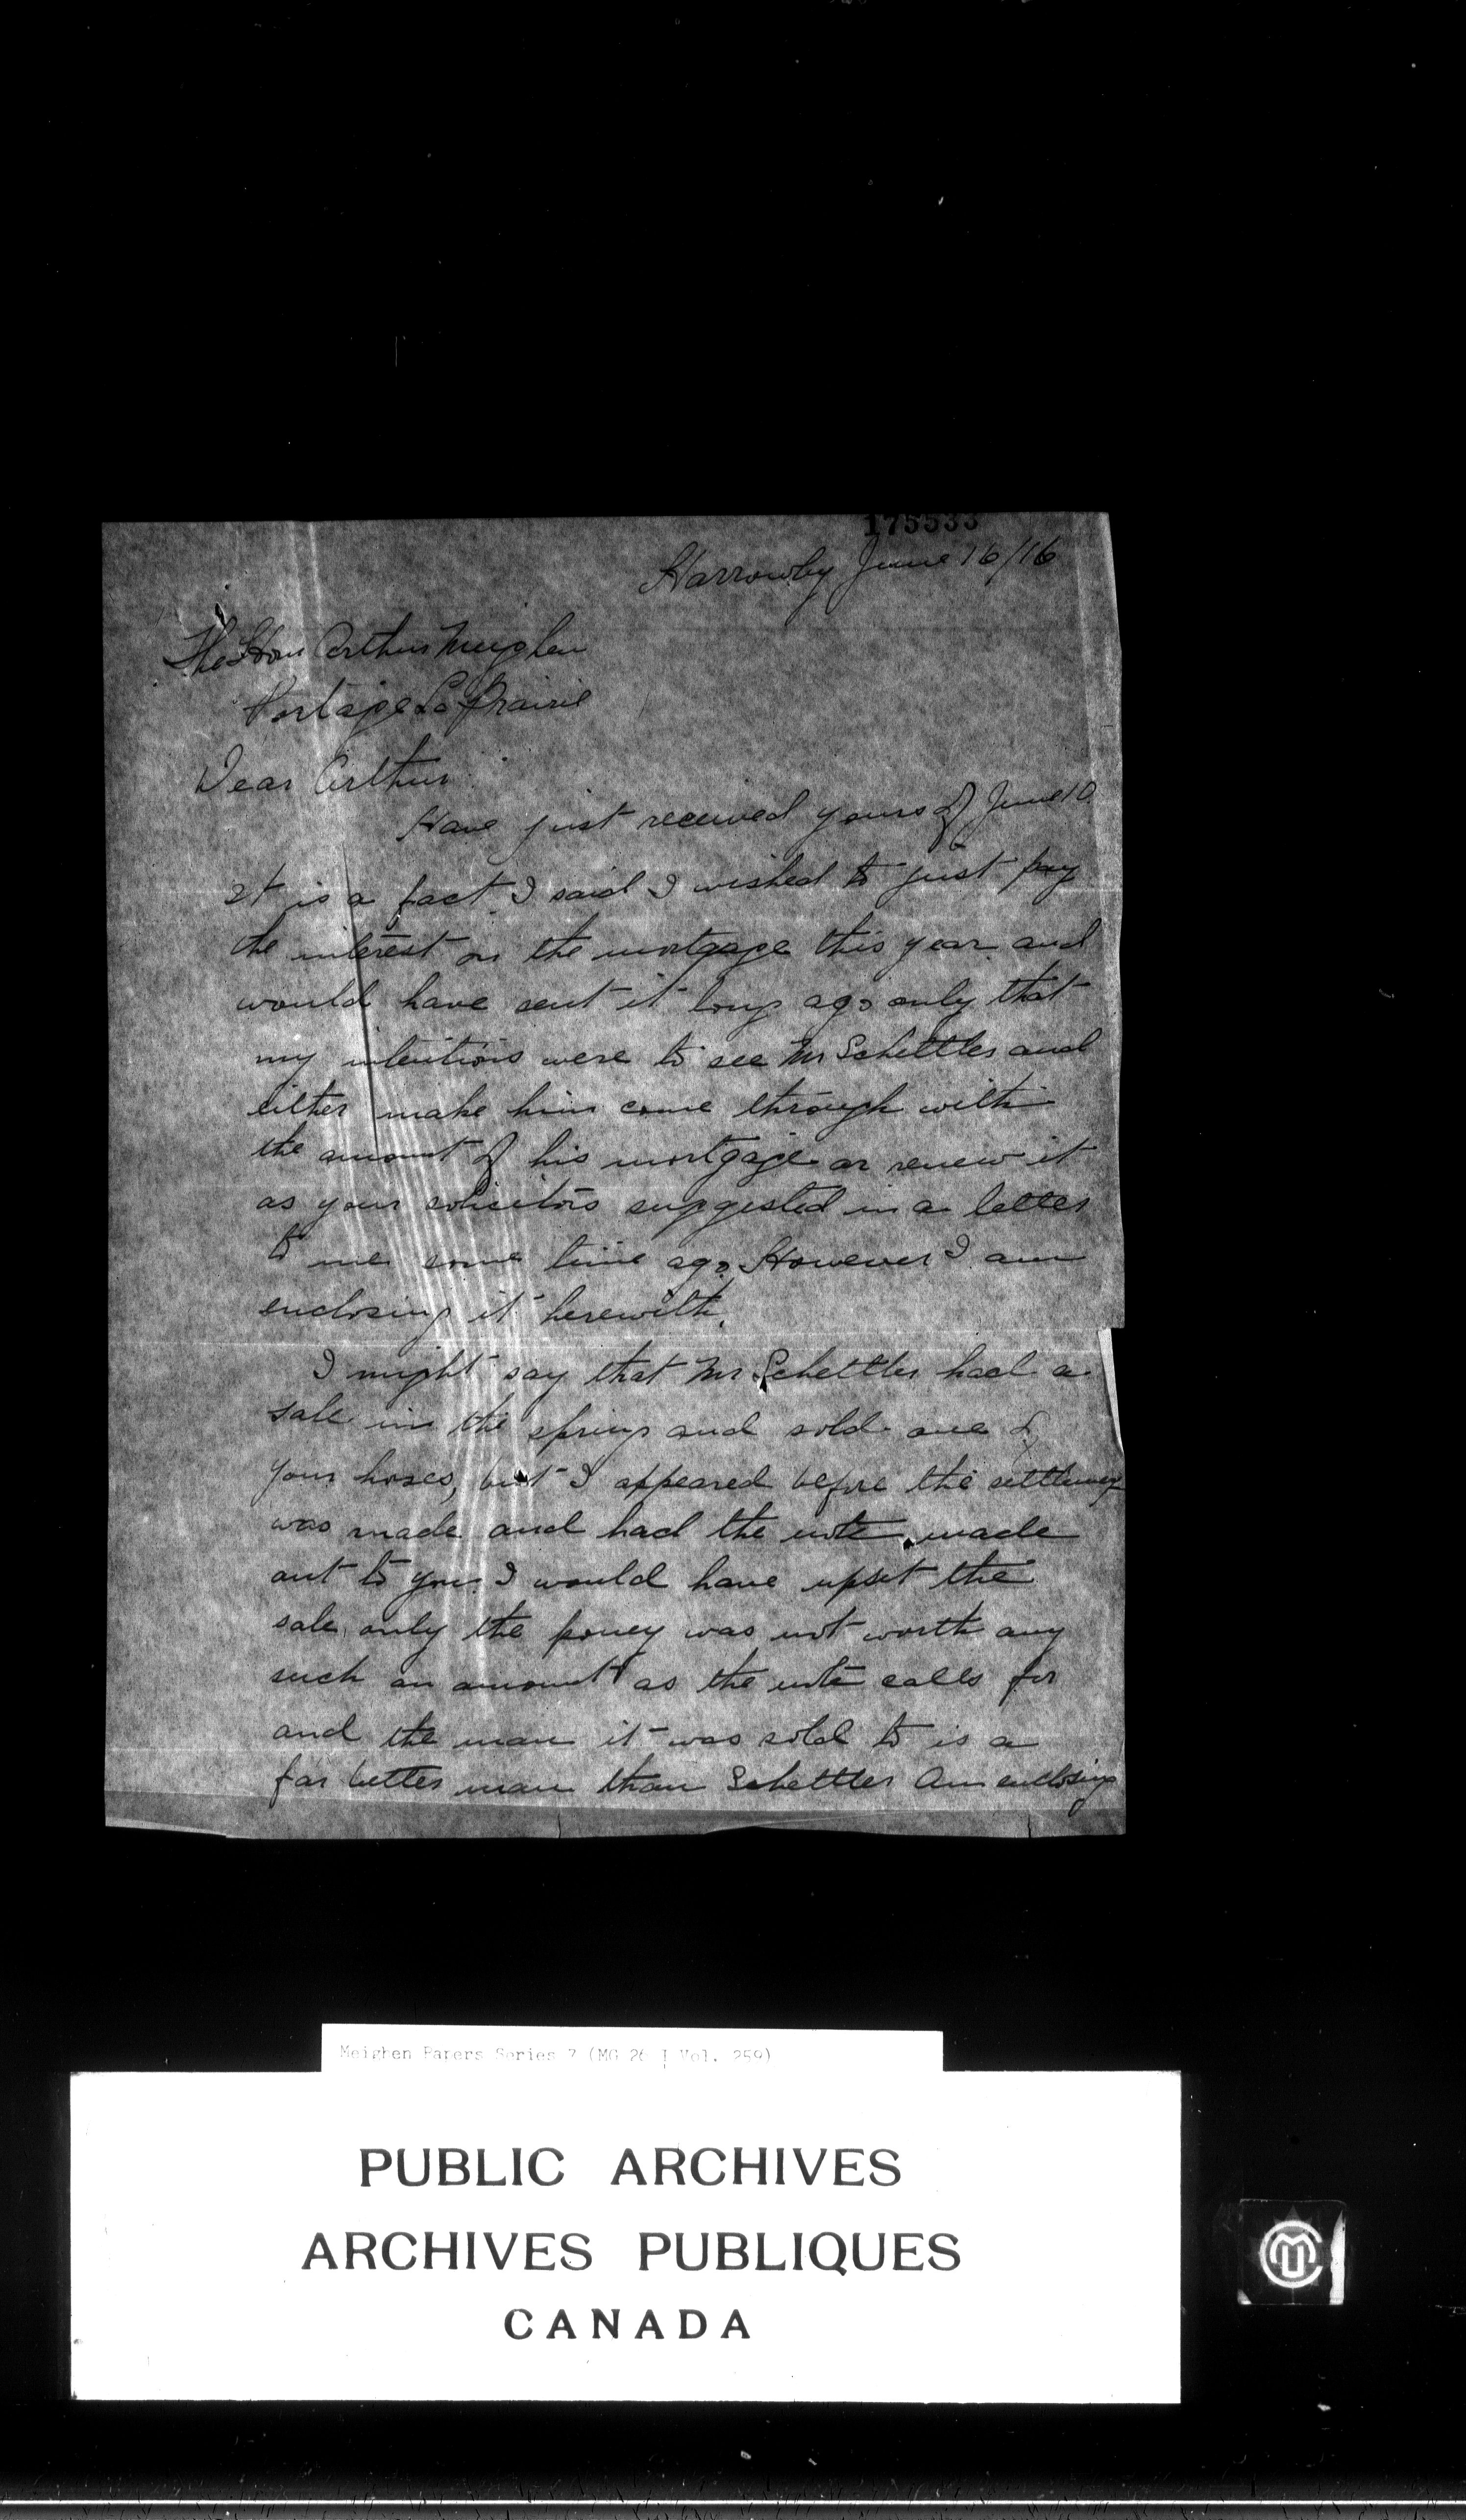 175533
Harrowby June 16/16
The Hon Arthur Meighen
Portage La Prairie
Dear Arthur
Have just received yours of June 10
It is a fact I said I wished to just pay
the interest on the mortgage this year and
would have sent it long ago only that
my intentions were to see Mr Schettler and
either make him come through with
the amount of his mortgage or renew it
as your solicitors suggested in a letter
to me some time ago. However I am
enclosing it herewith.
I might say that Mr Schettler had a
sale in the spring and sold one of
your hoses, but I appeared before the settlement
was made and had the note made
out to you. I would have upset the
sale only the poney was not worth any
such an amount as the note calls for
and the man it was sold to is a
far better man than Schettler Am enclosing
Meighen Papers Series 7 (MG 26 I Vol. 259)
PUBLIC ARCHIVES
ARCHIVES PUBLIQUES
CANADA